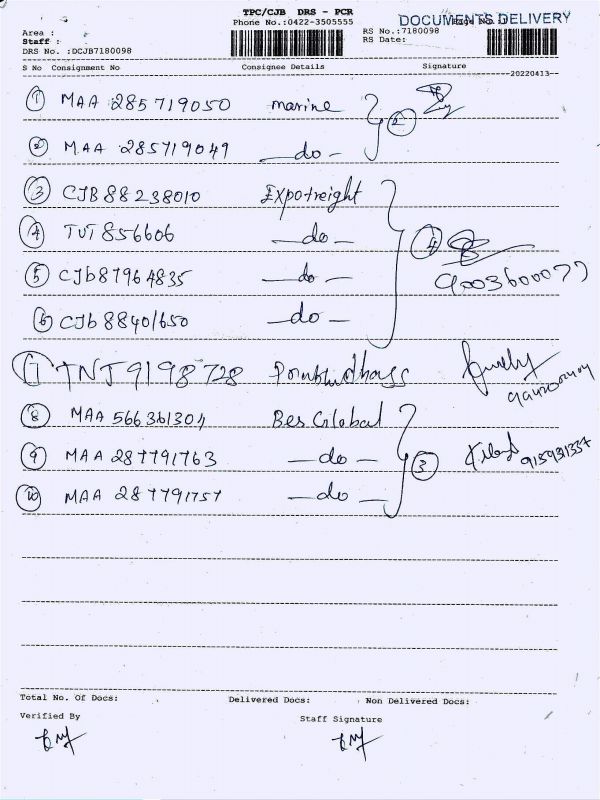 TPC/CJB DRS - PCR
Phone No.:0422-3505555
DOCUMENTS DELIVERY
Area :
Staff :
DRS No. :DCJB7180098
RS No.:7180098
RS Date:
S No Consignment No Consignee Details Signature
20220413
1 MAA 285719050 marine
2
2 MAA 285719049 —do—
3 CJB 88238010 Expofreight
4 TUT 856606 —do—
4
9003600077
5 CJb87964835 —do—
6 CJb 88401650 —do—
7 TNJ9198728
8 MAA 566361304 Bes Global
9 MAA 287791763 —do—
3
10 MAA 287791757 —do—
Total No. Of Docs: Delivered Docs: Non Delivered Docs:
Verified By Staff Signature